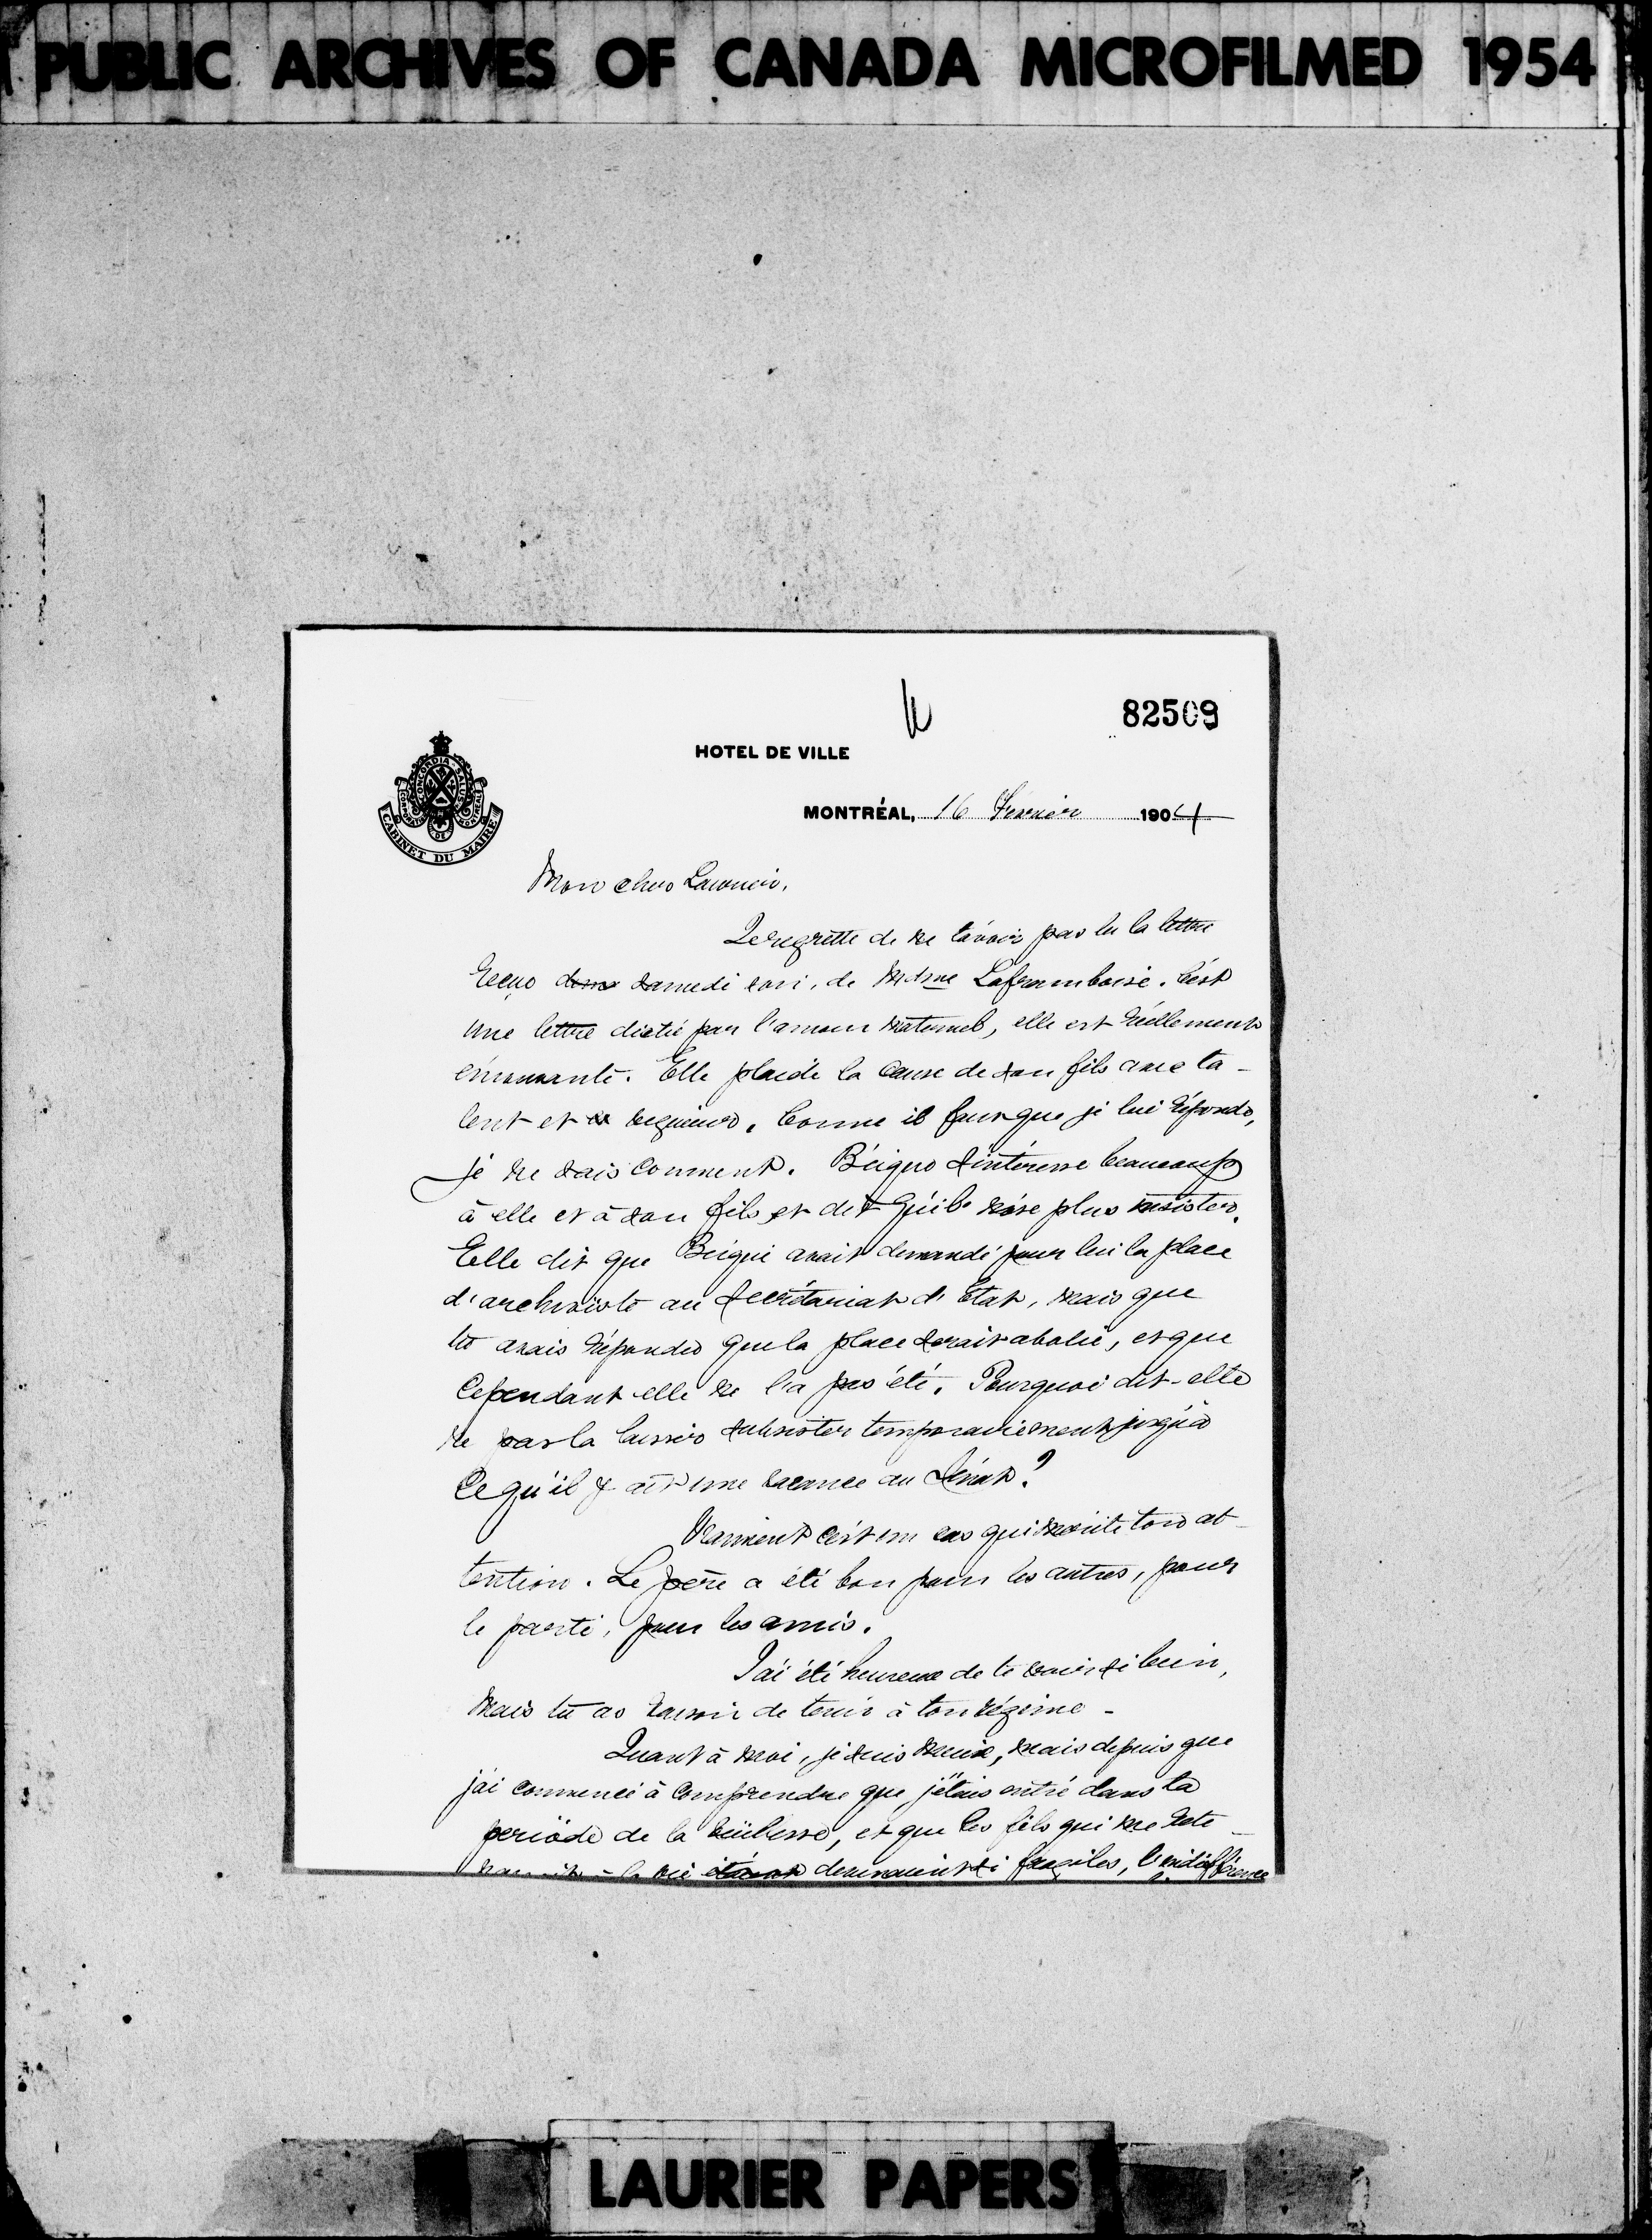 PUBLIC ARCHIVES OF CANADA MICROFILMED 1954
82509
HOTEL DE VILLE
CONCORDIA SALUS
CABINET DU MAIRE
MONTRÉAL, 16 Fevrier 1904
Mon cher Laurier,
Je regrette de ne t'avoir pas lu la lettre
reçue samedi soir, de Mdme Laframboise. C'est
une lettre dictée par l'amour maternel, elle est réellement
émouvante. Elle plaide la cause de son fils avec ta-
lent et vigueur. Comme il faut que je lui réponde,
je ne sais comment. Béique s'intéresse beaucoup
à elle et à son fils et dit qu'il n'ose plus insister.
Elle dit que Béique avait demandé pour lui la place
d'archiviste au Secrétariat d'Etat, mais que
tu avais répondu que la place serait abolie, et que
cependant elle ne l'a pas été. Pourquoi dit-elle
ne pas la laisser subsister temporairement jusqu'à
ce qu'il y ait une vacance au Sénat?
Vraiment c'est un cas qui mérite ton at-
tention. Le père a été bon pour les autres, pour
le parti, pour les amis.
J'ai été heureux de te voir si bien,
mais tu as raison de tenir à ton régime -
Quant à moi, je suis mieux, mais depuis que
j'ai commencé à comprendre que j'étais entré dans la
période de la vieillesse, et que les fils qui me rete-
la vie devenaient si fragiles, l'indifférence
LAURIER PAPERS